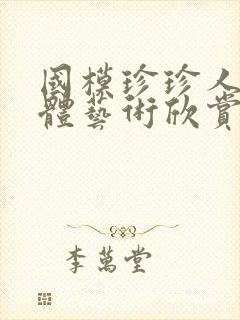 國模珍珍人
體藝術欣賞
李萬堂